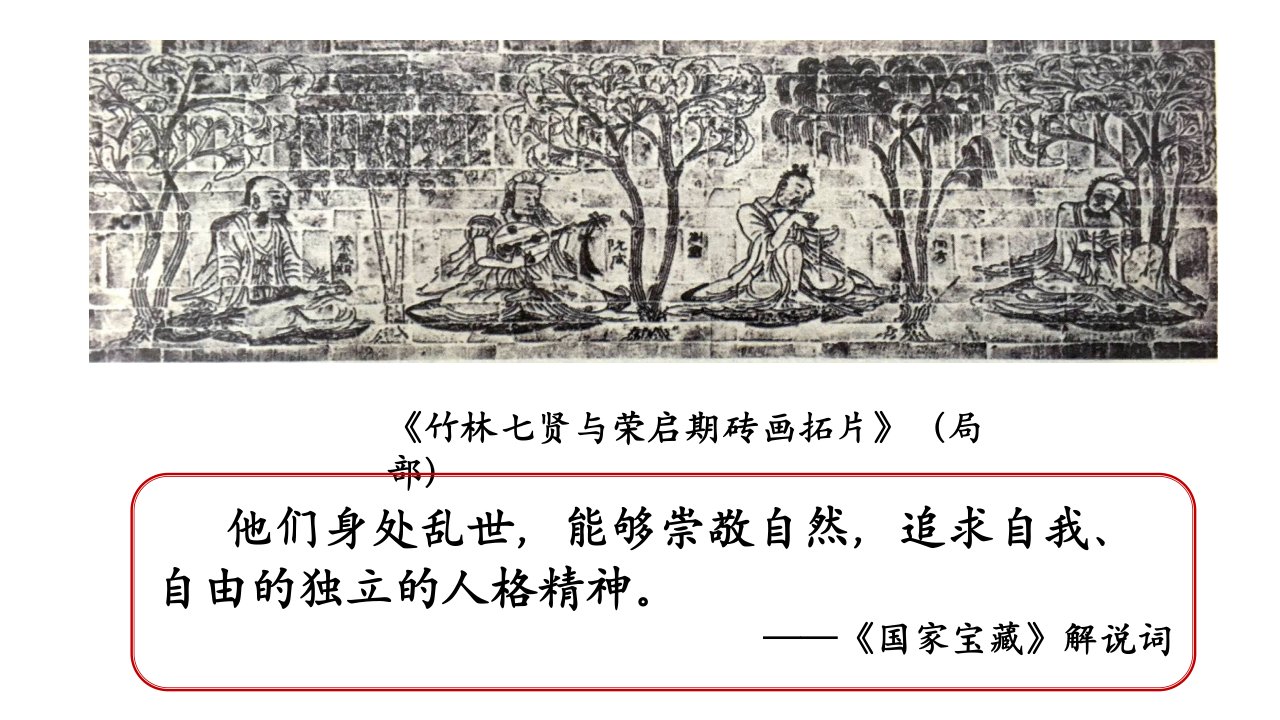 阮咸
《竹林七贤与荣启期砖画拓片》（局
部）
他们身处乱世，能够崇敬自然，追求自我、
自由的独立的人格精神。
——《国家宝藏》解说词